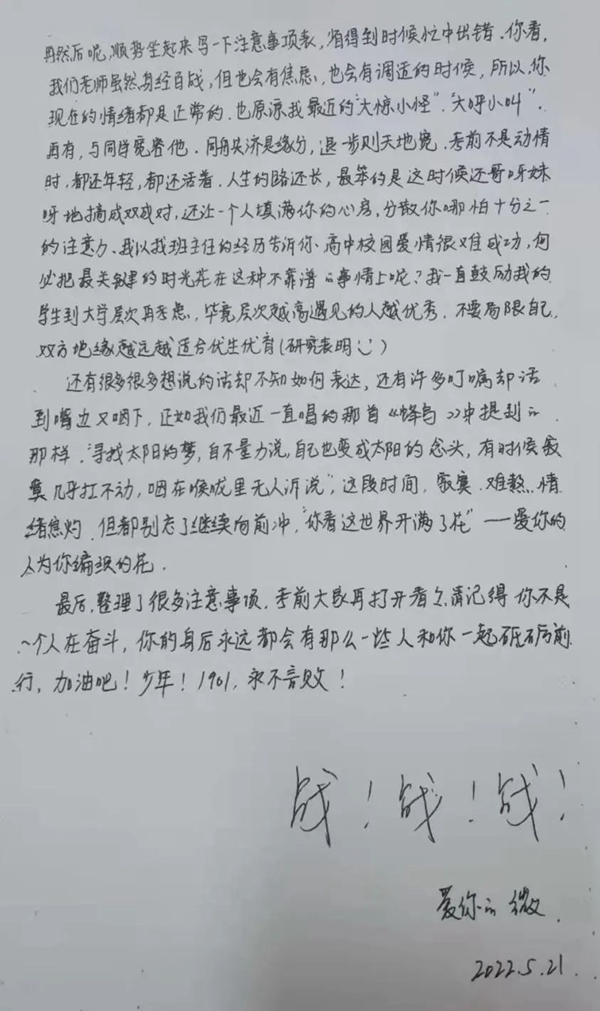 再然后呢,顺势坐起来写一下注意事项表,省得到时候忙中出错.你看,
我们老师虽然身经百战,但也会有焦虑,也会有调适的时候,所以,你
现在的情绪都是正常的.也原谅我最近的“大惊小怪”.“大呼小叫”.
再有,与同学宽容他.同舟共济是缘分,退一步则天地宽.考前不是动情
时,都还年轻,都还活着.人生的路还长,最笨的是这时候还哥呀妹
呀地搞成双成对,还让一个人填满你的心房,分散你哪怕十分之一
的注意力.我以我班主任的经历告诉你.高中校园爱情很难成功,何
必把最关键的时光花在这种不靠谱的事情上呢?我一直鼓励我的
学生到大学层次再考虑,毕竟层次越高遇见的人越优秀.不要局限自己,
双方地缘越远越适合优生优育(研究表明)
还有很多很多想说的话却不知如何表达,还有许多叮嘱却话
到嘴边又咽下,正如我们最近一直唱的那首《蜂鸟》中提到的
那样.“寻找太阳的梦,自不量力说,自己也变成太阳的念头,有时候寂
寞几乎扛不动,咽在喉咙里无人诉说”,这段时间.寂寞.难熬.情
绪焦灼.但都别忘了继续向前冲,“你看这世界开满了花”——爱你的
人为你编织的花.
最后,整理了很多注意事项,考前大家再打开看看,请记得你不是
一个人在奋斗,你的身后永远都会有那么一些人和你一起砥砺前
行,加油吧!少年!1901,永不言败!
战!战!战!
爱你的微.
2022.5.21.